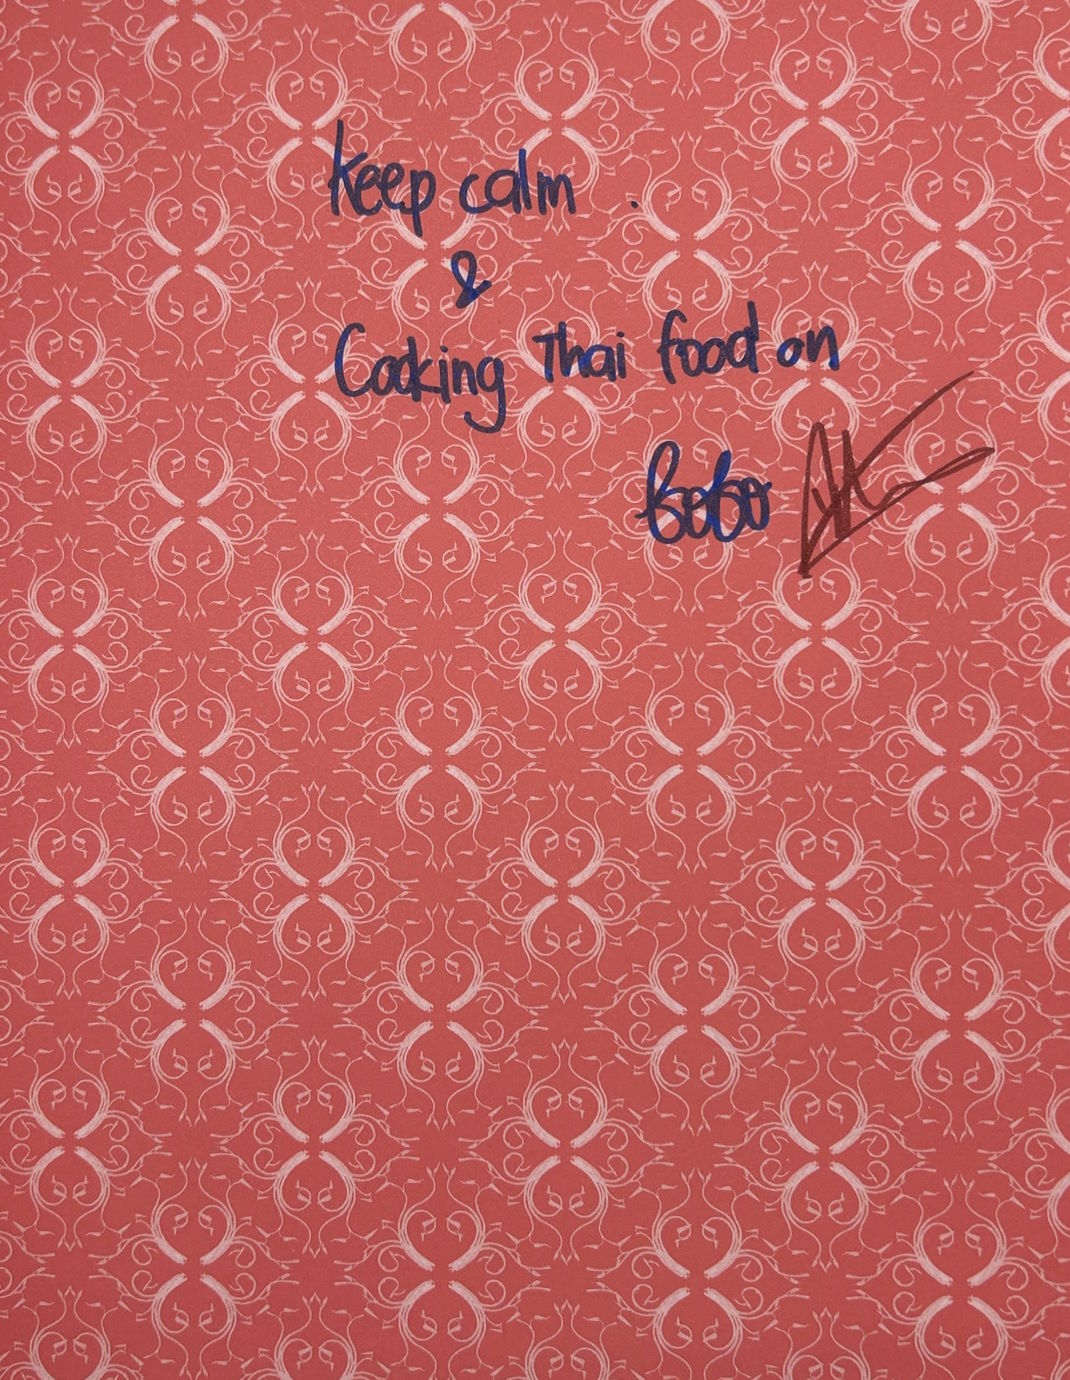 Keep calm .
&
Cooking Thai food on
BoBo